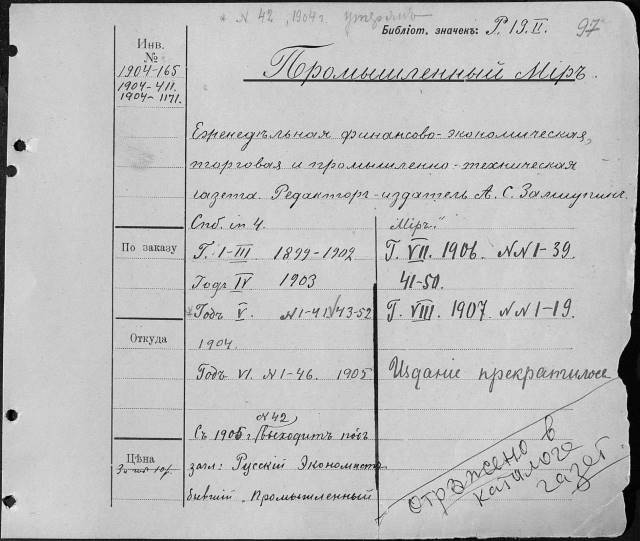 * N 42, 1904 г. утерянъ
Библіот. значекъ: Р. 19. II.
97
Инв.
№
1904-165
1904-411.
1904-1171.
Промышленный Міръ.
Еженедѣльная финансово-экономическая,
торговая и промышленно-техническая
газета. Редакторъ-издатель А. С. Залшупин.
Спб. in 4.
По заказу
Г. I-III 1899-1902
Годъ IV 1903
* Годъ V. N1-41 √ 43-52
1904.
Откуда
Годъ VI. N1-46. 1905
N 42
С 1905 г. (выходитъ подъ
Цѣна
загл: Русскій Экономистъ
бывшій „Промышленный
Міръ."
Г. VII. 1906. NN 1-39.
41-50.
Г. VIII. 1907. NN 1-19.
Изданіе прекратилось
отражено в
каталоге
газет.